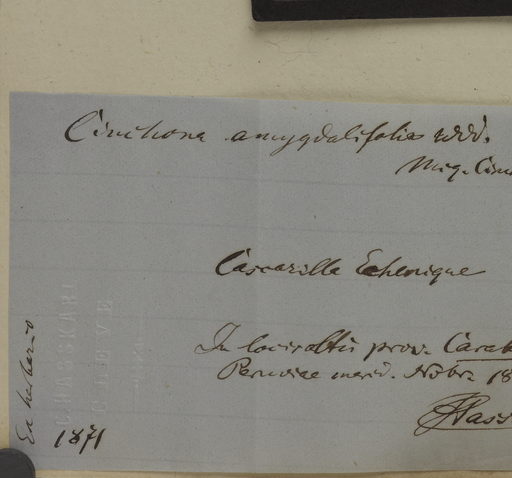 Cinchona amygdalifolia Wdd.
Miq. Cin
Cascarilla Echenique
In locis altis prov. Carab
Peruviae merid. Nobr. 18
Hass
Ex herbario
1871